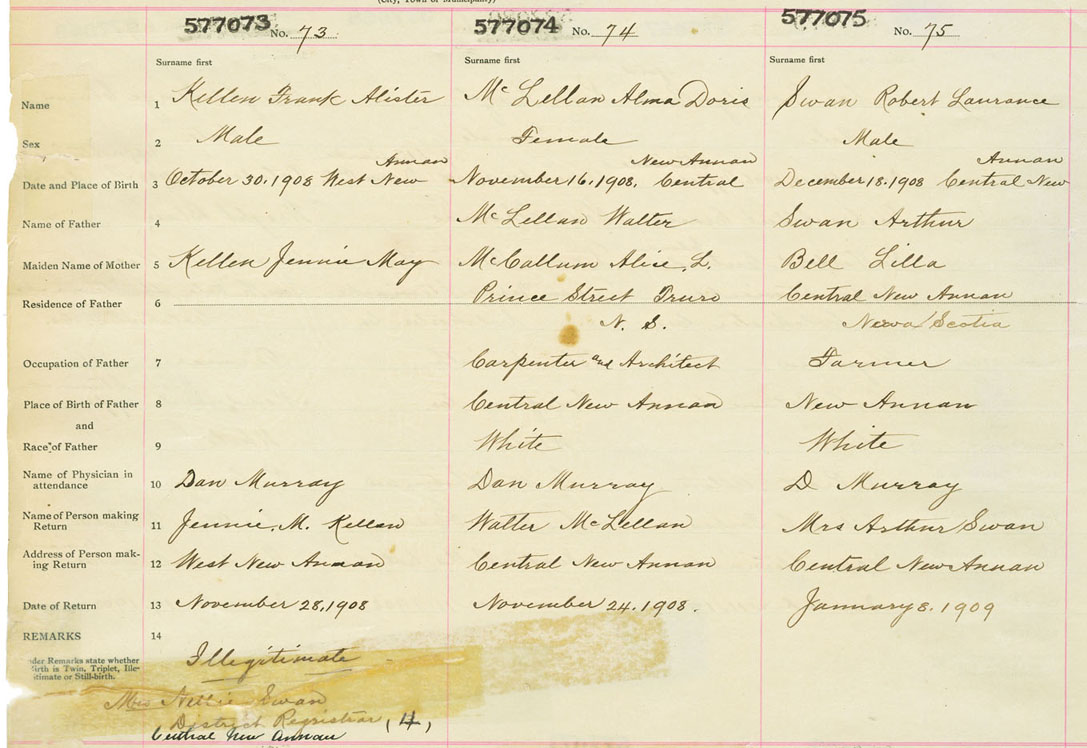 (City, Town or Municipality)
577073 No. 73 577074 No. 74 577075 No. 75
Surname first Surname first Surname first
Name 1 Kellen Frank Alister McLellan Alma Doris Swan Robert Laurance
Sex 2 Male Female Male
Annan New Annan Annan
Date and Place of Birth 3 October 30. 1908 West New November 16. 1908. Central December 18. 1908 Central New
Name of Father 4 McLellan Walter Swan Arthur
Maiden Name of Mother 5 Kellen Jennie May McCallum Alice L. Bell Lilla
Prince Street Truro Central New Annan
Residence of Father 6
N. S. Nova Scotia
Occupation of Father 7 Carpenter and Architect Farmer
Place of Birth of Father 8 Central New Annan New Annan
and
Race of Father 9 White White
Name of Physician in
attendance 10 Dan Murray Dan Murray D Murray
Name of Person making
Return 11 Jennie. M. Kellen Walter McLellan Mrs Arthur Swan
Address of Person mak-
ing Return 12 West New Annan Central New Annan Central New Annan
Date of Return 13 November 28, 1908 November 24. 1908. January 8. 1909
REMARKS 14
Illegitimate
der Remarks state whether
irth is Twin, Triplet, Ille-
itimate or Still-birth.
Mrs Nellie Swan
District Registrar (4)
Central New Annan